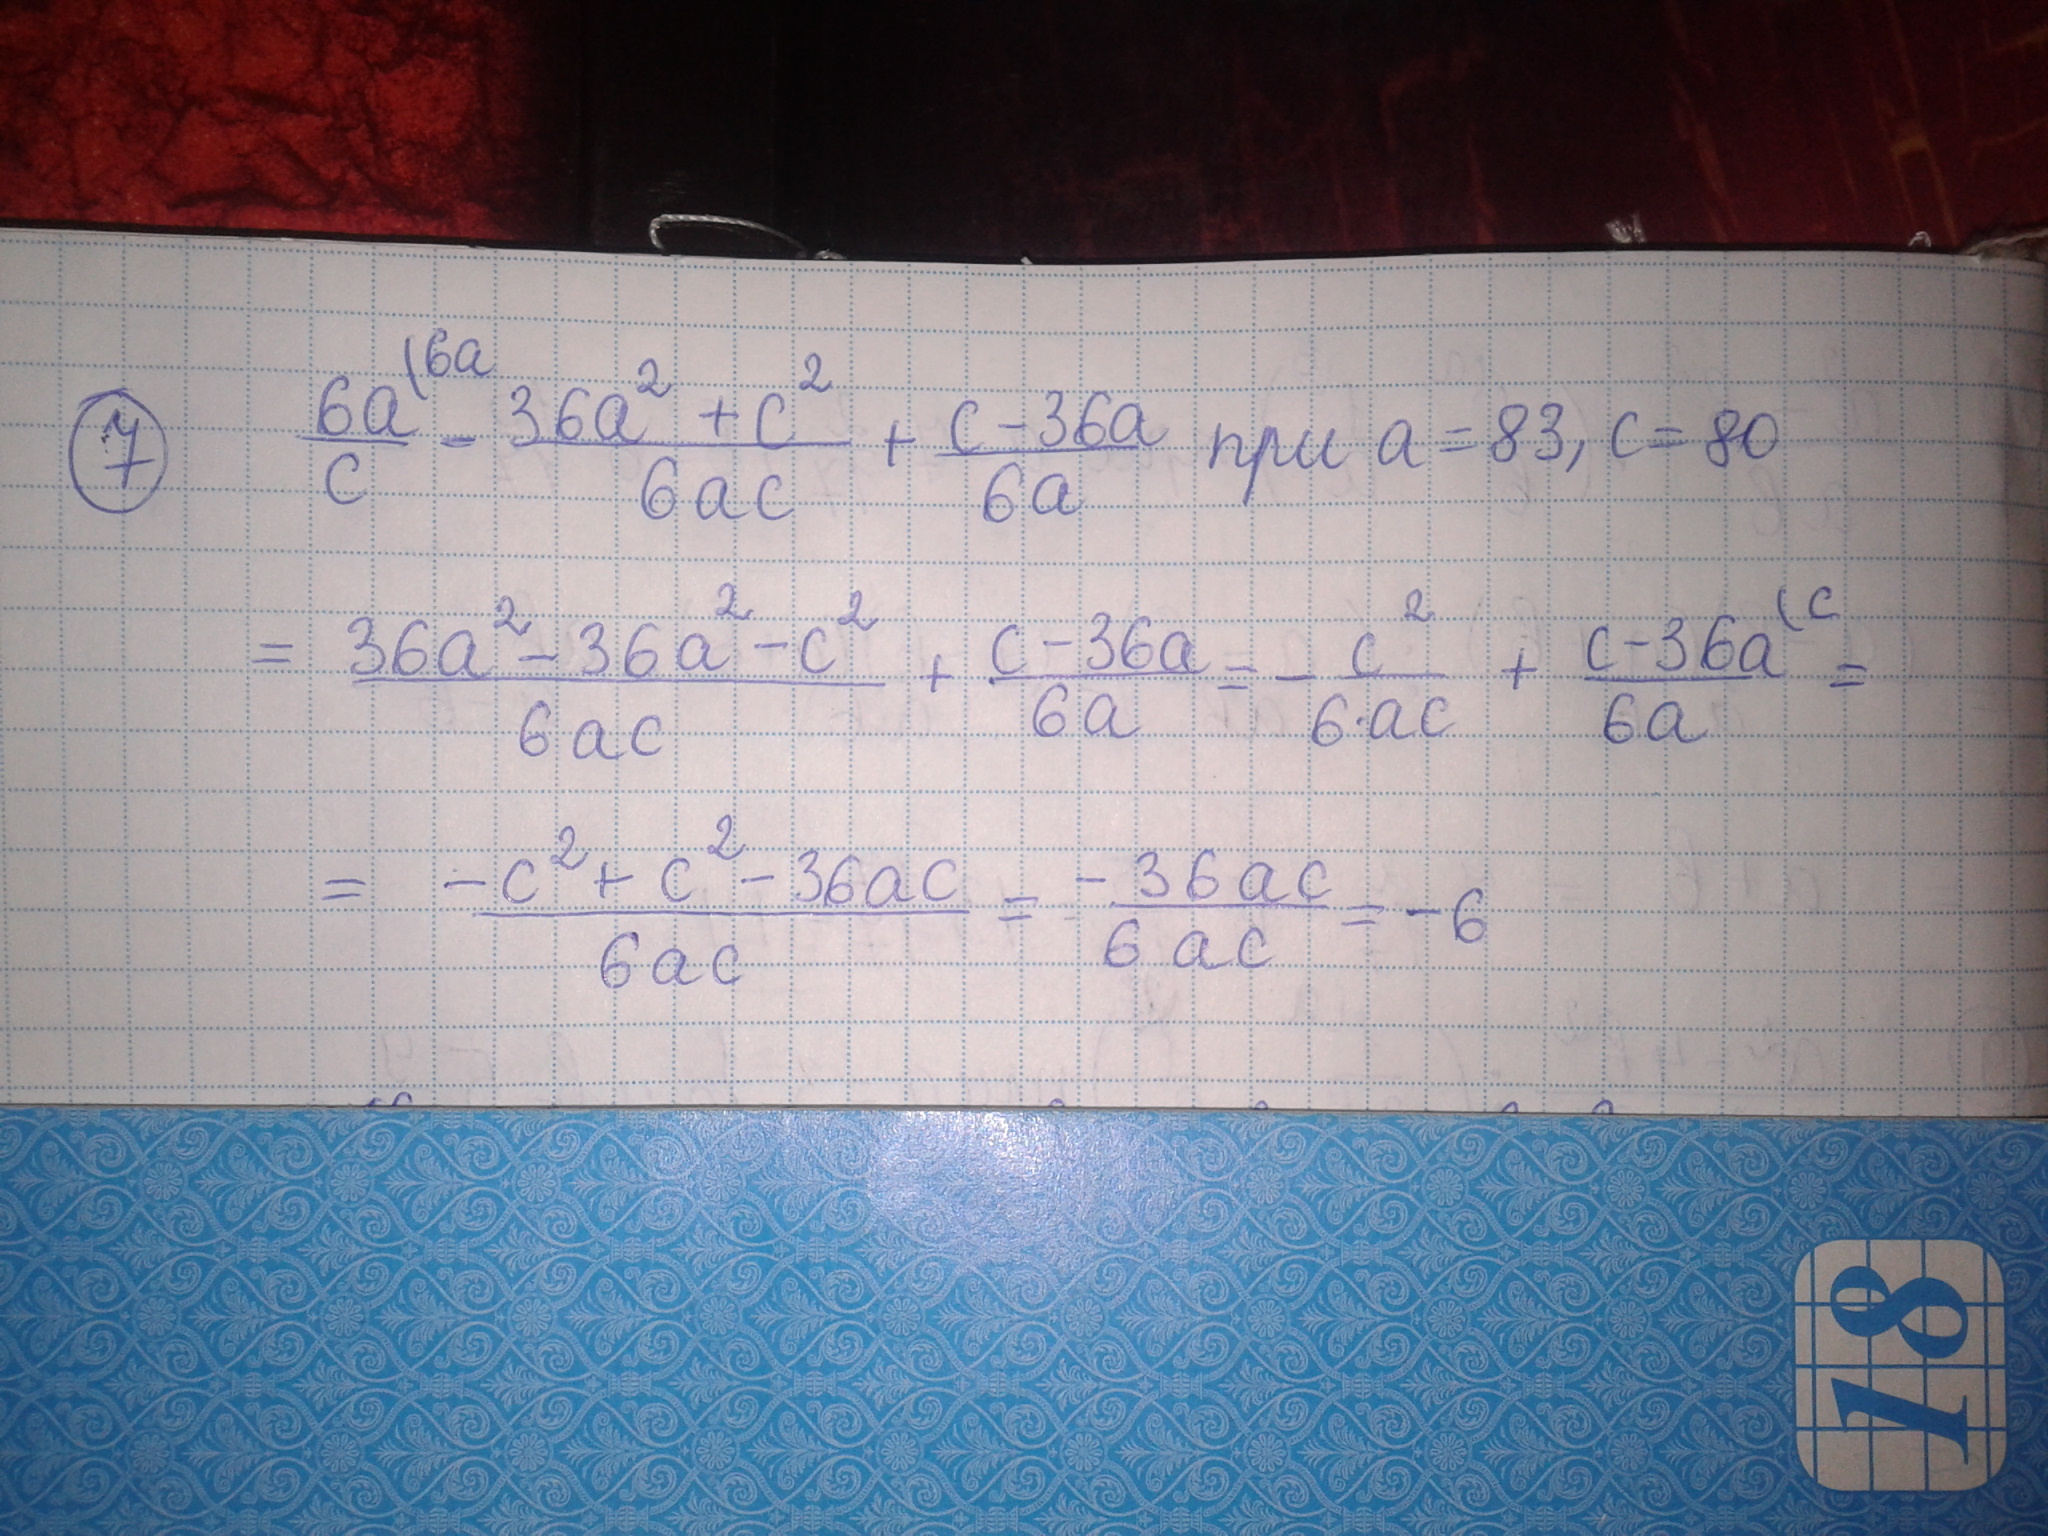 7 6a/c (6a - 36a² + c²/6ac + c - 36a/6a при a = 83, c = 80
= 36a² - 36a² - c²/6ac + c - 36a/6a = - c²/6·ac + c - 36a/6a (c =
= -c² + c² - 36ac/6ac = -36ac/6ac = -6
18